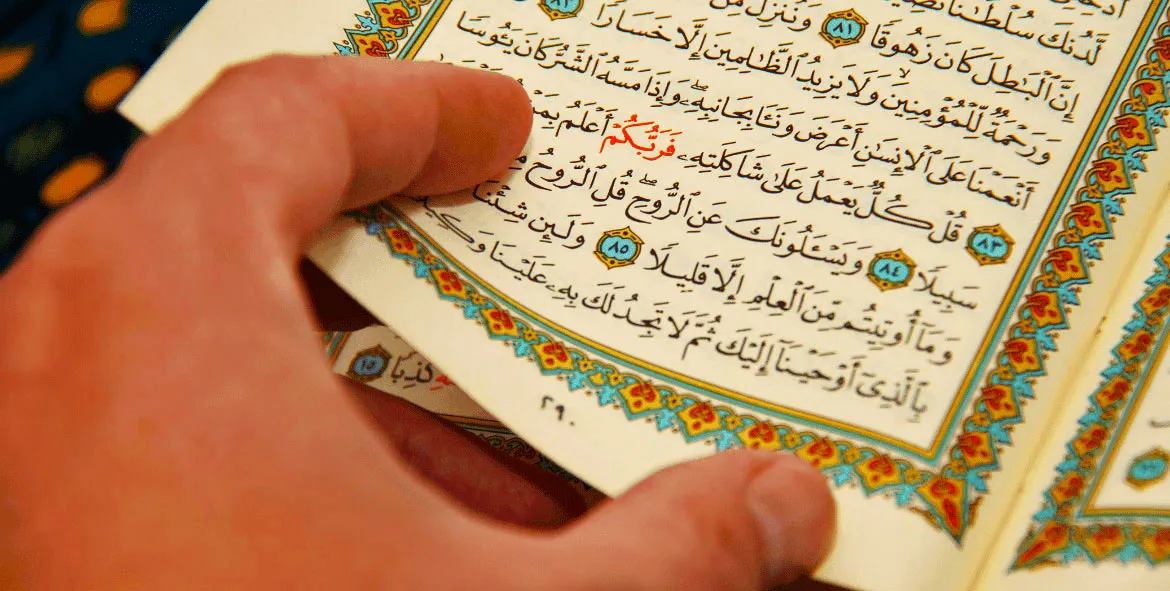 لَّدُنكَ سُلْطَـٰنًا
إِنَّ ٱلْبَـٰطِلَ كَانَ زَهُوقًا ٨١ وَنُنَزِّلُ مِنَ
وَرَحْمَةٌ لِّلْمُؤْمِنِينَ ۙ وَلَا يَزِيدُ ٱلظَّـٰلِمِينَ إِلَّا خَسَارًا ٨٢
أَنْعَمْنَا عَلَى ٱلْإِنسَـٰنِ أَعْرَضَ وَنَـَٔا بِجَانِبِهِۦ ۖ وَإِذَا مَسَّهُ ٱلشَّرُّ كَانَ يَـُٔوسًا
٨٣ قُلْ كُلٌّ يَعْمَلُ عَلَىٰ شَاكِلَتِهِۦ فَرَبُّكُمْ أَعْلَمُ
سَبِيلًا ٨٤ وَيَسْـَٔلُونَكَ عَنِ ٱلرُّوحِ ۖ قُلِ ٱلرُّوحُ
وَمَآ أُوتِيتُم مِّنَ ٱلْعِلْمِ إِلَّا قَلِيلًا ٨٥ وَلَئِن شِئْنَا
بِٱلَّذِىٓ أَوْحَيْنَآ إِلَيْكَ ثُمَّ لَا تَجِدُ لَكَ بِهِۦ عَلَيْنَا وَكِيلًا
٢٩٠
كَذِبًا ١٥